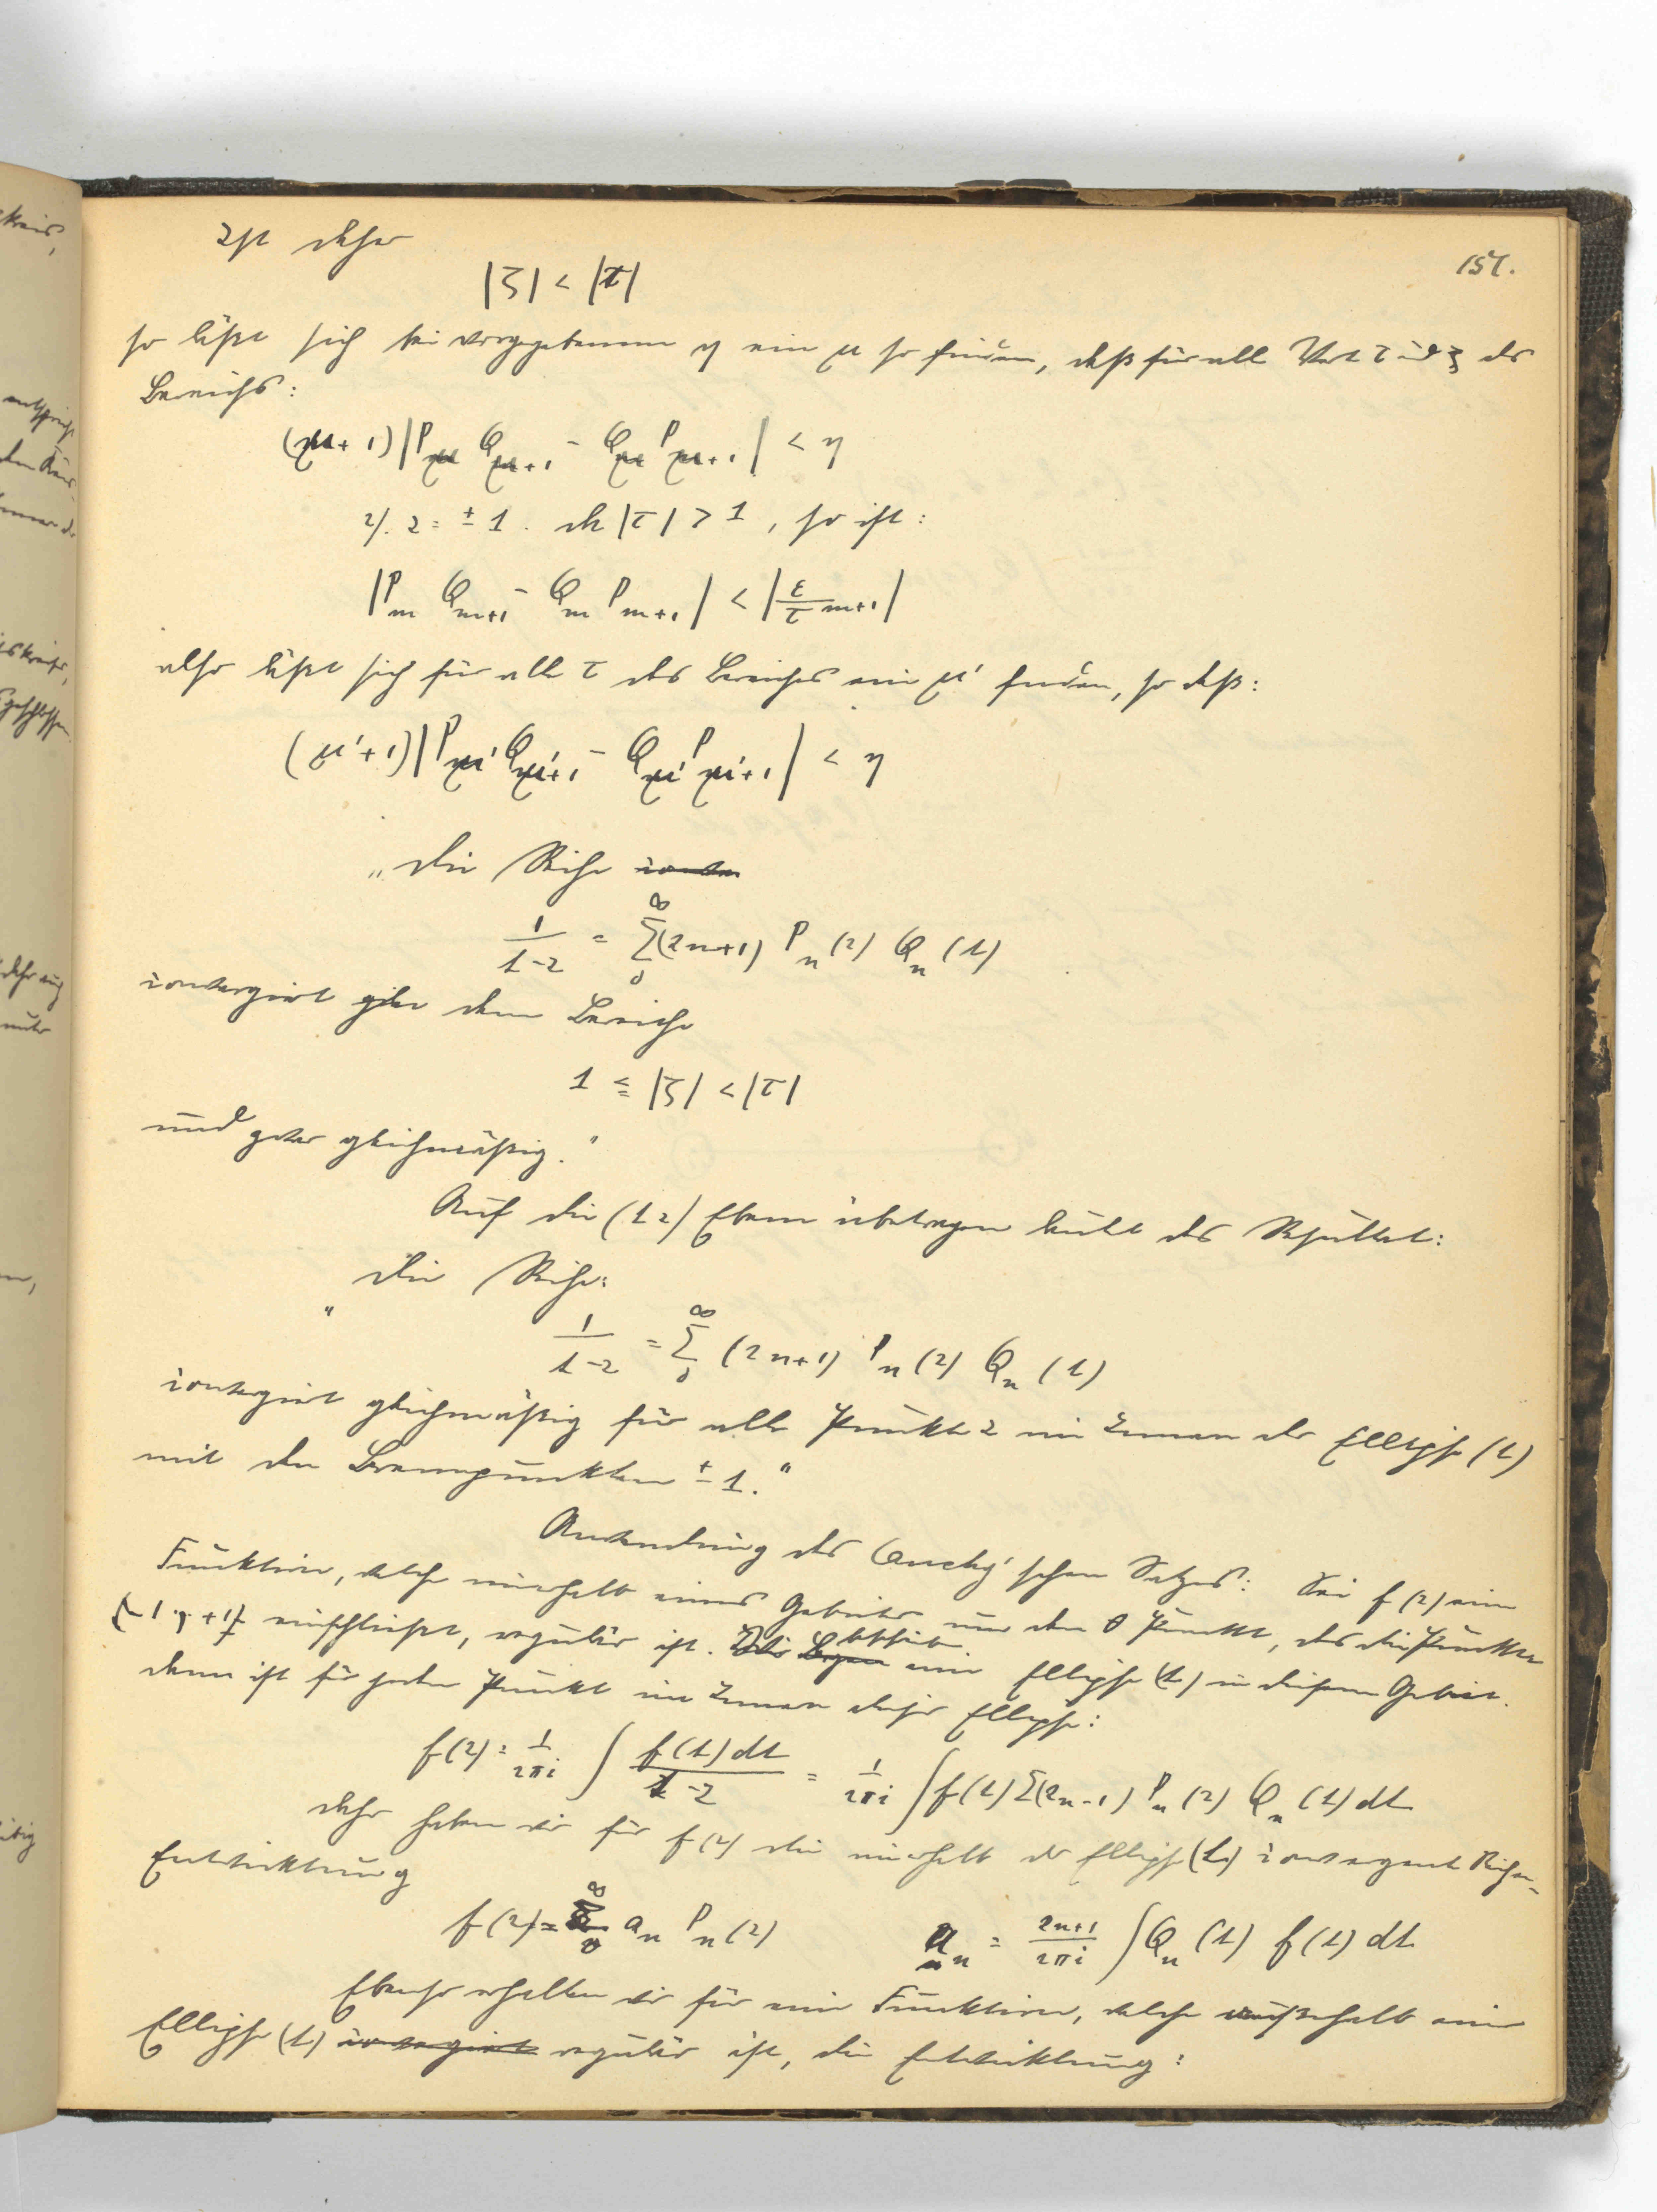 157.
Ist daher
|ζ| < |τ|
so läßt sich bei vorgegebenem η ein μ so finden, daß für alle Werte τ und ζ des
Bereichs:
(μ+1)|P_μ Q_μ+1 - Q_μ P_μ+1| < η
2). z = ± 1. da |τ| > 1, so ist:
|P_m Q_m+1 - Q_m P_m+1| < |ε/τ^m+1|
also läßt sich für alle τ des Bereiches ein μ' finden, so daß:
(μ'+1)|P_μ' Q_μ'+1 - Q_μ' P_μ'+1| < η
„Die Reihe
1/(t-z) = ∑_0^∞ (2n+1) P_n(z) Q_n(t)
convergirt in dem Bereiche
1 ≦ |ζ| < |τ|
und zwar gleichmäßig."
Auf die (t z) Ebene übertragen lautet das Resultat:
„Die Reihe:
1/(t-z) = ∑_0^∞ (2n+1) P_n(z) Q_n(t)
convergirt gleichmäßig für alle Punkte z im Innern der Ellipse (t)
mit den Brennpunkten ± 1."
Anwendung des Cauchy'schen Satzes: Sei f(z) eine
Funktion, welche innerhalb eines Gebietes um den 0 Punkt, das die Punkte
(-1, +1) einschließt, regulär ist. eine Ellipse (t) in diesem Gebiet.
dann ist für jeden Punkt im Innern dieser Ellipse:
f(z) = 1/2πi ∫ f(t)dt/(t-z) = 1/2πi ∫ f(t) ∑(2n-1) P_n(z) Q_n(t) dt
daher haben wir für f(z) die innerhalb der Ellipse (t) convergente Reihen-
Entwicklung
f(z) = ∑_0^∞ a_n P_n(z) a_n = (2n+1)/2πi ∫ Q_n(t) f(t) dt
Ebenso erhalten wir für eine Funktion, welche außerhalb einer
Ellipse (t) convergirt regulär ist, die Entwicklung: